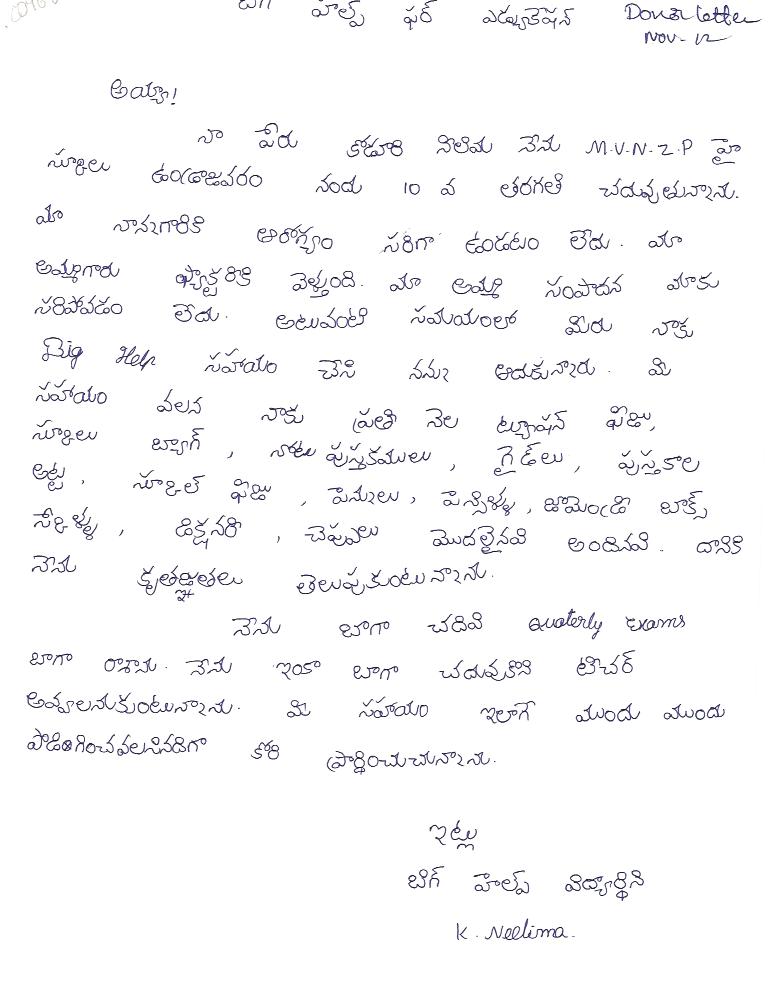 బిగ్ హెల్ప్ ఫర్ ఎడ్యుకేషన్ Donor letter
Nov-12
అయ్యా!
నా పేరు కోడూరి నీలిమ నేను M.V.N.Z.P హై
స్కూలు ఉండ్రాజవరం నందు 10 వ తరగతి చదువుతున్నాను.
మా నాన్నగారికి ఆరోగ్యం సరిగా ఉండటం లేదు. మా
అమ్మగారు ఫ్యాక్టరీకి వెళ్తుంది. మా అమ్మ సంపాదన మాకు
సరిపోవడం లేదు. అటువంటి సమయంలో మీరు నాకు
Big Help సహాయం చేసి నన్ను ఆదుకున్నారు. మీ
సహాయం వలన నాకు ప్రతి నెల ట్యూషన్ ఫీజు,
స్కూలు బ్యాగ్, నోటు పుస్తకములు, గైడ్‌లు, పుస్తకాల
అట్ట, స్కూల్ ఫీజు, పెన్నులు, పెన్సిళ్ళు, జామెండ్రి బాక్స్
స్కేళ్ళు, డిక్షనరీ, చెప్పులు మొదలైనవి అందినవి. దానికి
నేను కృతజ్ఞతలు తెలుపుకుంటున్నాను.
నేను బాగా చదివి Quaterly Exams
బాగా రాశాను. నేను ఇంకా బాగా చదువుకొని టీచర్
అవ్వాలనుకుంటున్నాను. మీ సహాయం ఇలాగే ముందు ముందు
పొడిగించవలసినదిగా కోరి ప్రార్థించుచున్నాను.
ఇట్లు
బిగ్ హెల్ప్ విద్యార్థిని
K. Neelima.